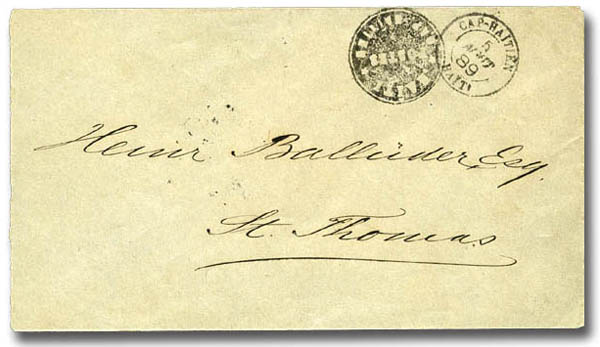 CAP-HAITIEN
5
AOUT
89
HAITI
Heinr Ballüder, Esq.
St. Thomas